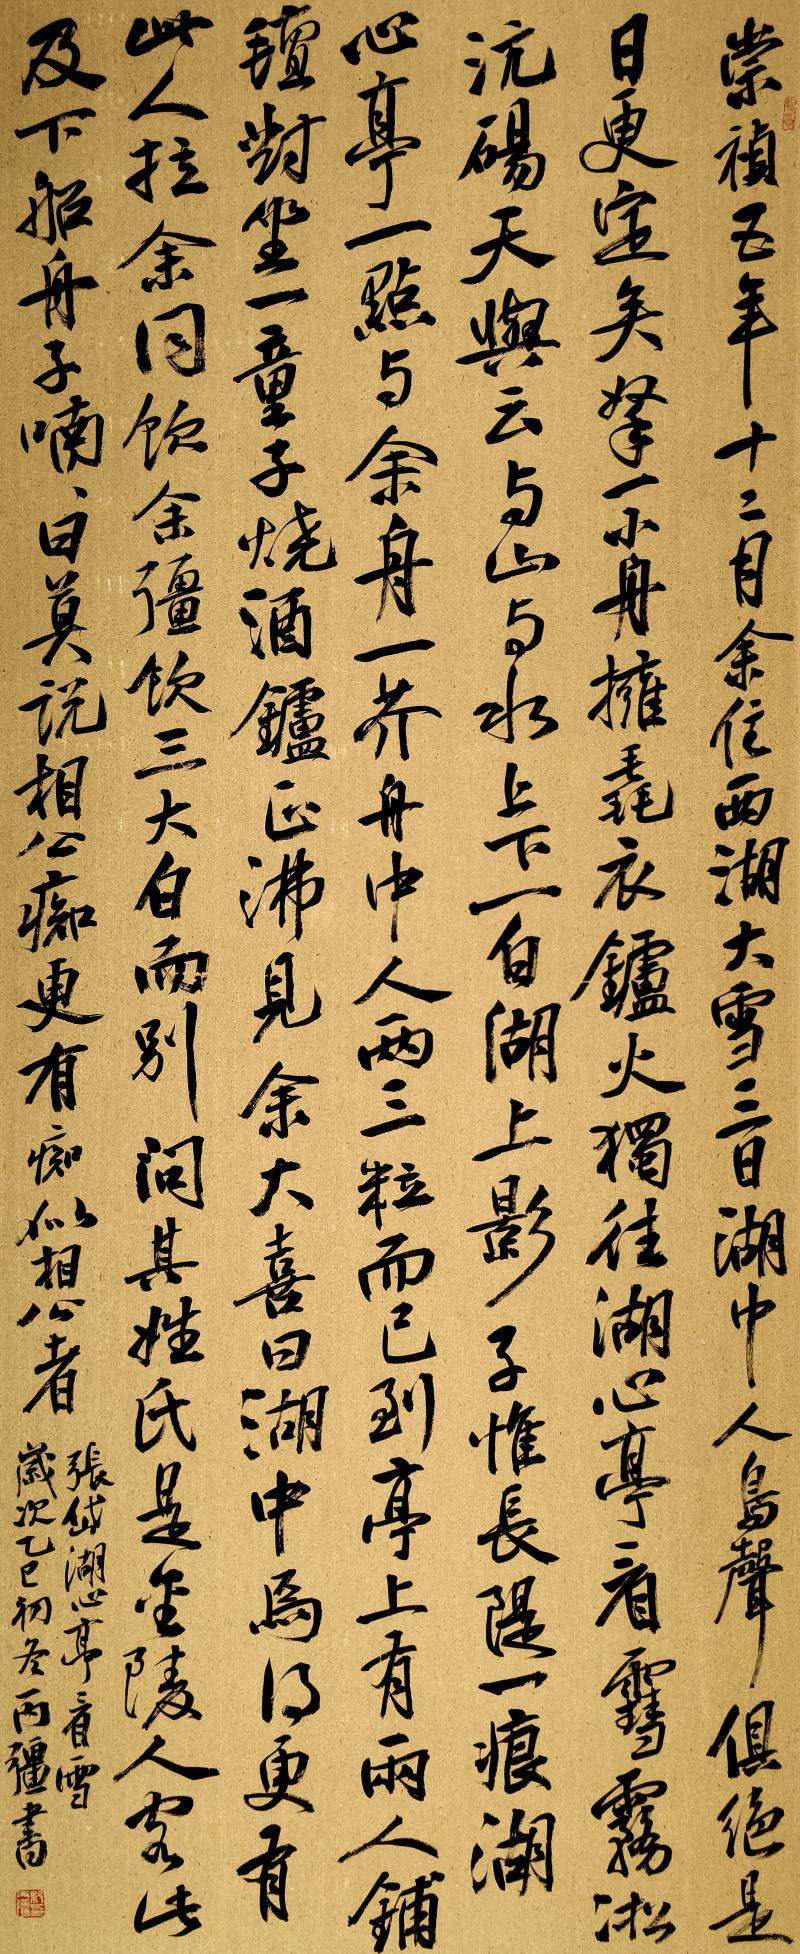 崇禎五年十二月余住西湖大雪三日湖中人鳥聲俱絕是
日更定矣拏一小舟擁毳衣鑪火獨往湖心亭看雪霧凇
沆碭天與云与山与水上下一白湖上影子惟長隄一痕湖
心亭一點与余舟一芥舟中人两三粒而已到亭上有兩人鋪
氊對坐一童子焼酒鑪正沸見余大喜曰湖中焉得更有
此人拉余同飲余彊飲三大白而别问其姓氏是金陵人客此
及下船舟子喃、曰莫説相公癡更有痴似相公者
張岱湖心亭看雪
歲次乙巳初冬丙疆書